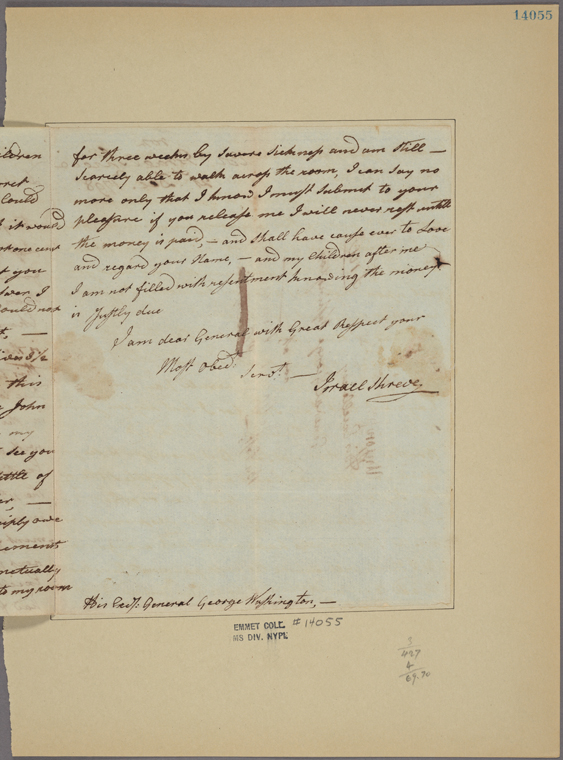 14055
ildren
for three weeks by Severe Sickness and am Still —
Scarcely able to walk across the room, I can Say no
more only that I know I must Submit to your
pleasure if you release me I will never rest untill
the money is paid, — and Shall have cause ever to Love
and regard your Name, — and my Children after me
I am not filled with resentment knowing the money
is Justly due
I am dear General with Great Respect your
Most Obedt.
Servt. —
Israel Shreve
could
it would
t you
ever I
ould not
this
John
my
See you
ittle of
to my room
His Excy. General George Washington, —
EMMET COLL. #14055
MS DIV. NYPL
3
487
4
69.70